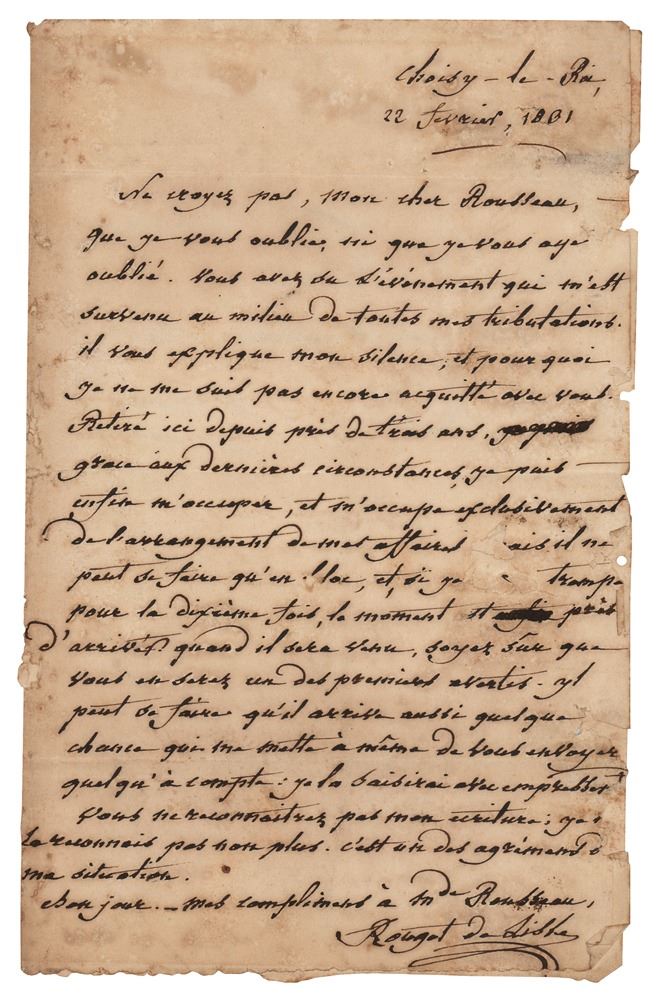 Choisy-le-Roi,
22 février, 1831
Ne croyez pas, mon cher Rousseau,
que je vous oublie, ni que je vous aye
oublié. Vous avez su l'événement qui m'est
survenu au milieu de toutes mes tribulations.
il vous explique mon silence, et pourquoi
je ne me suis pas encore acquitté avec vous.
Retiré ici depuis près de trois ans,
grace aux dernières circonstances, je puis
enfin m'occuper, et m'occupe exclusivement
de l'arrangement de mes affaires ais il ne
peut se faire qu'en bloc, et, si je trompe
pour la dixième fois, le moment est près
d'arriver quand il sera venu, soyez sûr que
vous en serez un des premiers avertis. Il
peut se faire qu'il arrive aussi quelque
chance qui me mette à même de vous envoyer
quelqu'à compte : je la saisirai avec empressemt
Vous ne reconnaitrez pas mon ecriture ; je
la reconnais pas non plus. c'est un des agréments
ma situation.
Bonjour. _ mes compliments à Mde Rousseau,
Rouget de Lisle